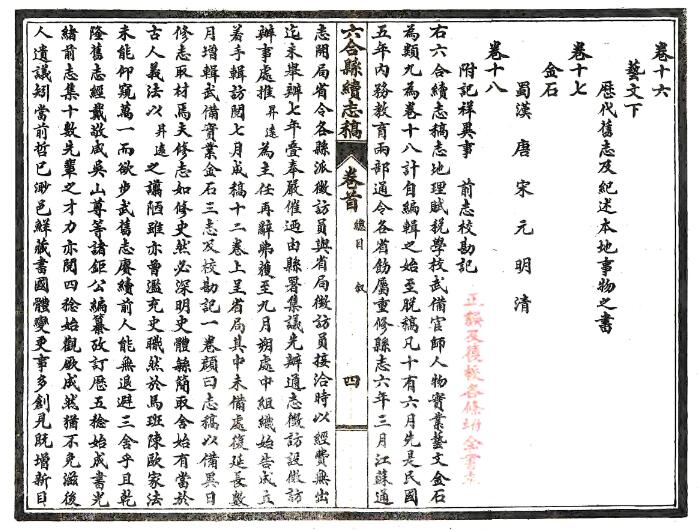 卷十六
藝文下
歷代舊志及紀述本地事物之書
卷十七
金石
蜀漢 唐 宋 元 明 清
卷十八
附記祥異事 前志校勘記
右六合續志稿志地理賦稅學校武備官師人物實業藝文金石
為類九為卷十八計自編輯之始至脫稿凡十有六月先是民國
五年內務教育兩部通令各省飭屬重修縣志六年三月江蘇通
六合縣續志稿 卷首 總目 敘 四
志開局省令各縣派徵訪員與省局徵訪員接洽時以經費無出
迄未舉辦七年疊奉嚴催迺由縣署集議先辦通志徵訪設徵訪
辦事處推昇遠為主任再辭弗獲至九月朔處中組織始告成立
著手輯訪閱七月成稿十二卷上呈省局其中未備處復延長數
月增輯武備實業金石三志及校勘記一卷顏曰志稿以備異日
修志取材焉夫修志如修史然必深明史體繇簡取舍始有當於
古人義法以昇遠之譾陋雖亦曾濫充史職然於馬班陳歐家法
未能仰窺萬一而欲步武舊志賡續前人能無退避三舍乎且乾
隆舊志經戴敬咸吳山尊等諸鉅公編纂改訂歷五稔始成書光
緒前志集十數先輩之才力亦閱四稔始觀厥成然猶不免滋後
人遺議矧當前哲已渺邑鮮藏書國體變更事多創見既增新目